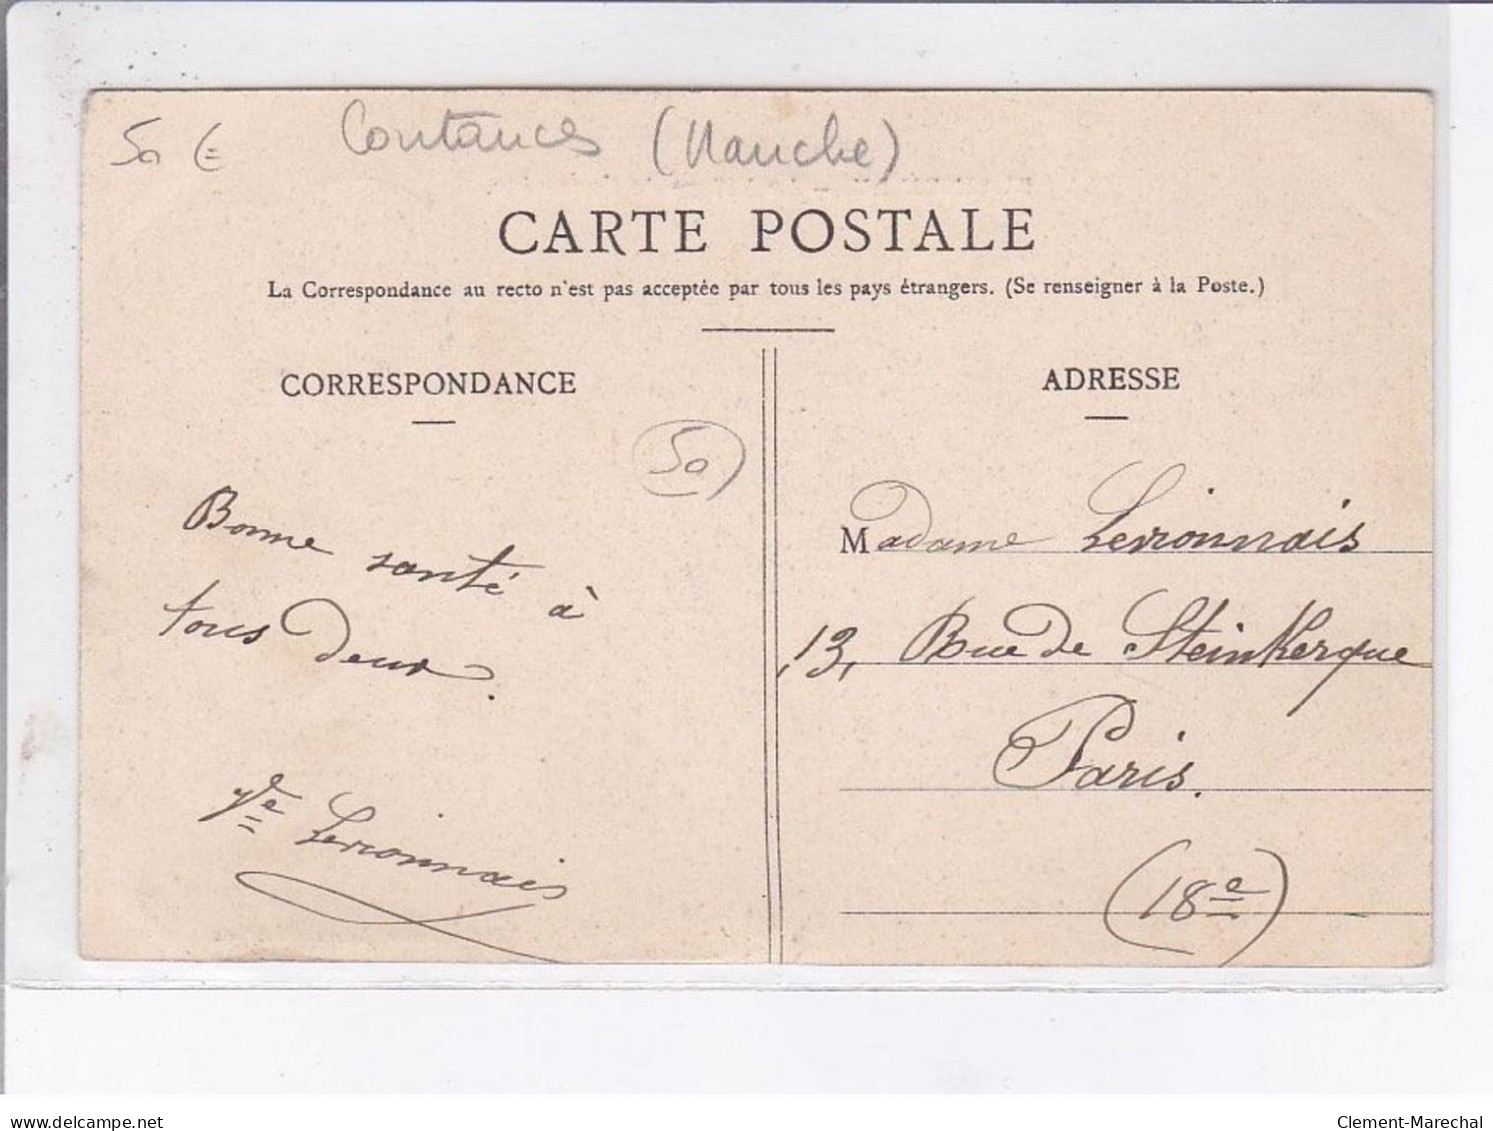 50 €
Coutances (Manche)
CARTE POSTALE
La Correspondance au recto n'est pas acceptée par tous les pays étrangers. (Se renseigner à la Poste.)
CORRESPONDANCE
50
Bonne santé à
tous deux.
Vve Levionnais
ADRESSE
Madame Levionnais
13, Rue de Steinkerque
Paris.
(18e)
delcampe.net
Clement-Marechal